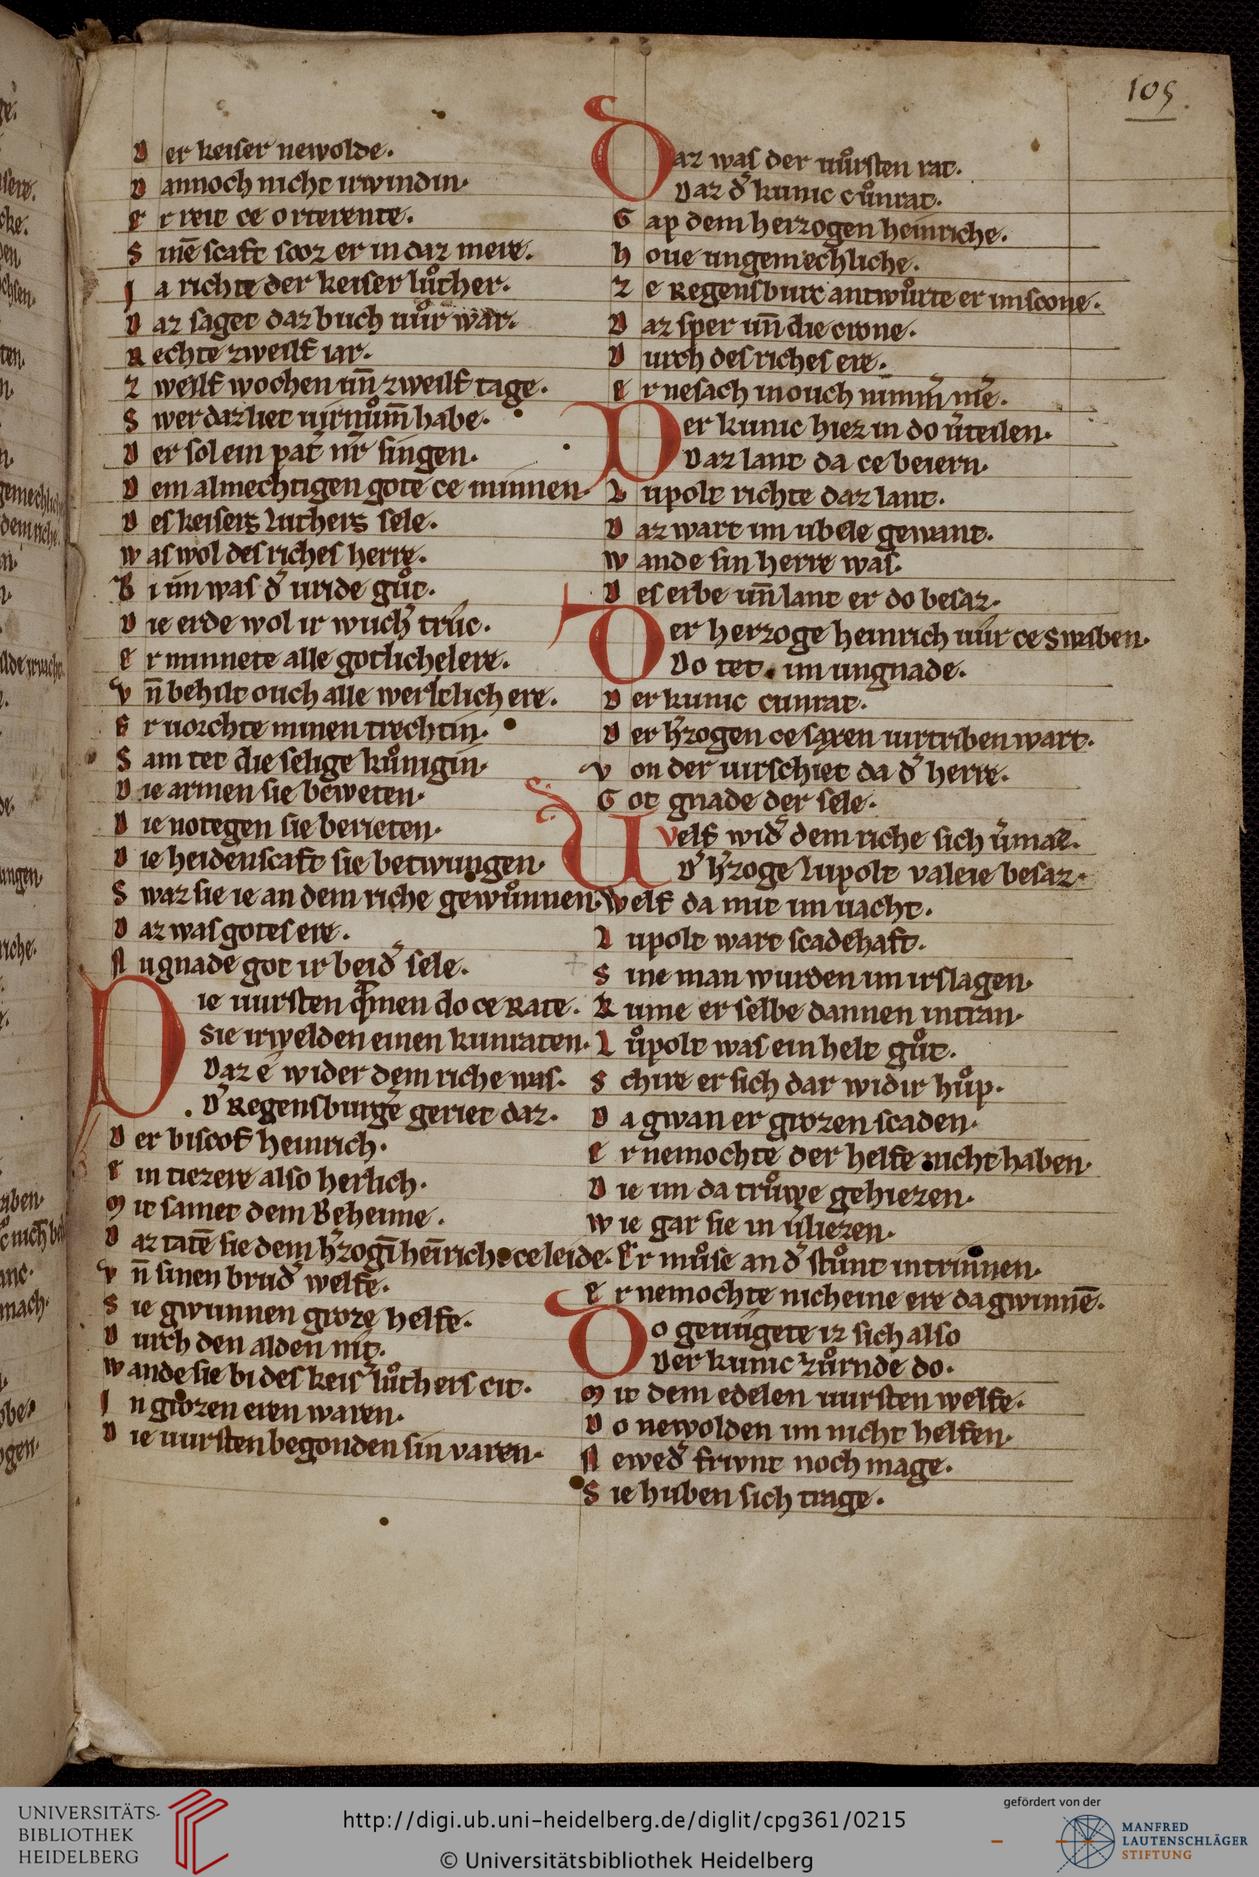 105
Der keiser newolde.
Dannoch nicht irwindin.
er reit ce orterente.
Sinē scaft scoz er in daz mere.
Ja richte der keiser luͦther.
Daz saget daz buch uuͦr war.
Rechte zwelif iar.
zwelif wochen un̄ zwelif tage.
Swer daz liet uirnuͦm̄ habe.
Der sol ein pat̄ nr̄ singen.
Dem almechtigen gote ce minnen.
Des keisers luthers sele.
was wol des riches herre.
Bi im was d̓ uride guͦt.
Die erde wol ir wuch̓ truc.
Er minnete alle gotliche lere.
vn̄ behilt ouch alle werltlich ere.
Er uorchte minen trechtin.
Sam tet die selige kuͦnigin.
Die armen sie beweten.
Die notegen sie berieten.
Die heidenscaft sie betwungen.
Swaz sie ie an dem riche gewuͦnnen.
Daz was gotes ere.
Nu gnade got ir beid̓ sele.
Die uursten q̄men do ce Rate.
Sie irwelden einen kunraten.
Daz e wider dem riche was.
D̓ Regensburg̓e geriet daz.
Der biscof heinrich.
Ein tiezere also herlich.
Mit samet dem Beheime.
Daz tatē sie dem h̓zogī heīrich ce leide.
vn̄ sinen brud̓ welfe.
Sie gwunnen groze helfe.
Durch den alden nit.
Wande sie bi des keis̓ luͦthers cit.
In grozen eren waren.
Die uursten begonden sin varen.
Daz was der uuͦrsten rat.
Daz d̓ kunic cuͦnrat.
Gap dem herzogen heinriche.
houe ungemechliche.
ze Regensburc antwuͦrte er im scone.
Daz sper un̄ die crone.
Durch des riches ere.
Er nesach in ouch nimm̓ me̓.
Der kunic hiez in do u̓teilen.
Daz lant da ce beiern.
Lupolt richte daz lant.
Daz wart im ubele gewant.
Wande sin herre was.
Des erbe un̄ lant er do besaz.
Der herzoge heinrich uur ce swaben.
Do tet im ungnade.
Der kunic cunrat.
Der h̓zogen ce saxen uirtriben wart.
Von der uirschiet da d̓ herre.
Got gnade der sele.
Uvelf wid̓ dem riche sich u̓maz.
D̓ h̓zoge lupolt valeie besaz.
Welf da mit im uacht.
Lupolt wart scadehaft.
Sine man wurden im irslagen.
Kume er selbe dannen intran.
Luͦpolt was ein helt guͦt.
Schire er sich dar widir huͦp.
Da gwan er grozen scaden.
Er nemochte der helfe nicht haben.
Die im da truͦwe gehiezen.
Wie gar sie in u̓liezen.
Er muͦse an d̓ stuͦnt intrinnen.
Er nemochte nicheine ere da gwinnē.
Do genugete iz sich also
Der kunic zuͦrnde do.
Mit dem edelen uursten welfe.
Do newolden im nicht helfen.
Newed̓ friunt noch mage.
Sie huben sich trage.
UNIVERSITÄTS-
BIBLIOTHEK
HEIDELBERG
http://digi.ub.uni-heidelberg.de/diglit/cpg361/0215
© Universitätsbibliothek Heidelberg
gefördert von der
MANFRED
LAUTENSCHLÄGER
STIFTUNG